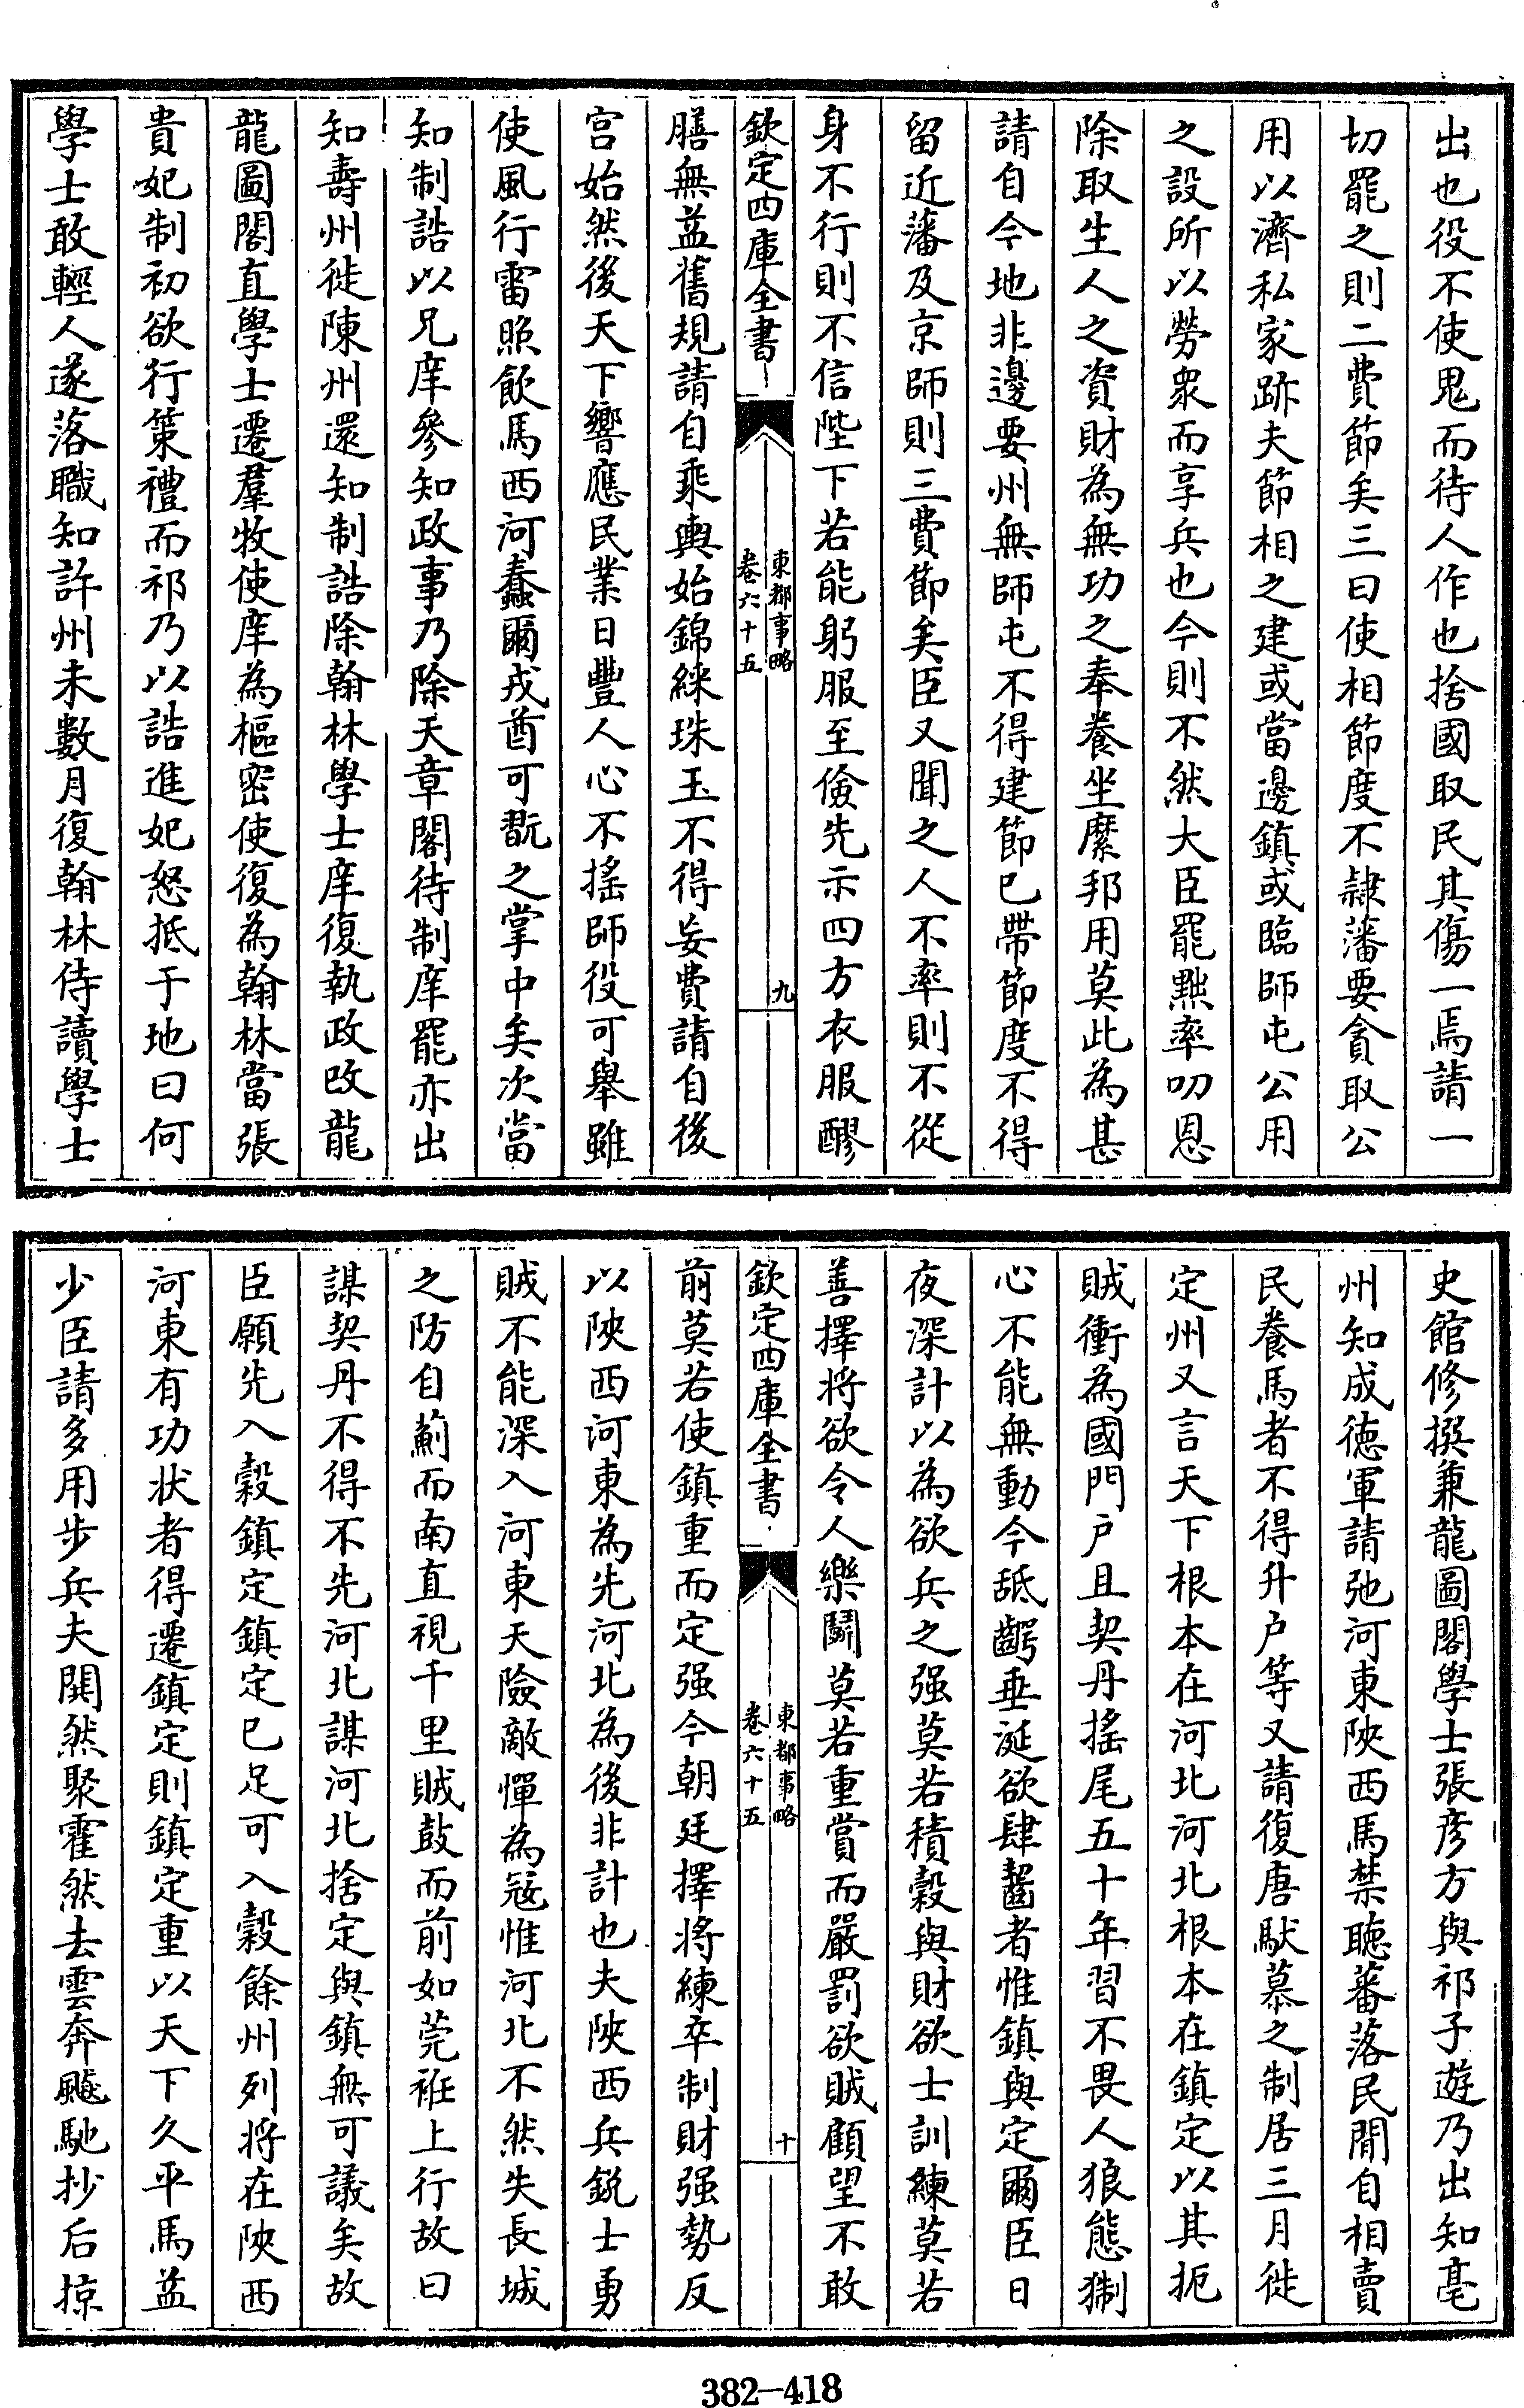 出也役不使鬼而待人作也捨國取民其傷一焉請一
切罷之則二費節矣三曰使相節度不隷藩要貪取公
用以濟私家跡夫節相之建或當邊鎮或臨師屯公用
之設所以勞衆而享兵也今則不然大臣罷黜率叨恩
除取生人之資財為無功之奉養坐縻邦用莫此為甚
請自今地非邊要州無師屯不得建節已帶節度不得
留近藩及京師則三費節矣臣又聞之人不率則不從
身不行則不信陛下若能躬服至儉先示四方衣服醪
欽定四庫全書
東都事略
卷六十五
九
膳無益舊規請自乘輿始錦綵珠玉不得妄費請自後
宮始然後天下響應民業日豐人心不搖師役可舉雖
使風行雷照飲馬西河蠢爾戎酋可翫之掌中矣次當
知制誥以兄庠參知政事乃除天章閣待制庠罷亦出
知壽州徙陳州還知制誥除翰林學士庠復執政改龍
龍圖閣直學士遷羣牧使庠為樞密使復為翰林當張
貴妃制初欲行策禮而祁乃以誥進妃怒抵于地曰何
學士敢輕人遂落職知許州未數月復翰林侍讀學士
史館修撰兼龍圖閣學士張彥方與祁子遊乃出知亳
州知成徳軍請弛河東陝西馬禁聴蕃落民閒自相賣
民養馬者不得升户等又請復唐馱慕之制居三月徙
定州又言天下根本在河北河北根本在鎮定以其扼
賊衝為國門户且契丹搖尾五十年習不畏人狼態猘
心不能無動今舐齶垂涎欲肆齧者惟鎮與定爾臣日
夜深計以為欲兵之强莫若積穀與財欲士訓練莫若
善擇將欲令人樂鬭莫若重賞而嚴罰欲賊顧望不敢
欽定四庫全書
東都事略
卷六十五
十
前莫若使鎮重而定强今朝廷擇將練卒制財强勢反
以陝西河東為先河北為後非計也夫陝西兵鋭士勇
賊不能深入河東天險敵憚為寇惟河北不然失長城
之防自薊而南直視千里賊鼓而前如莞袵上行故曰
謀契丹不得不先河北謀河北捨定與鎮無可議矣故
臣願先入穀鎮定鎮定已足可入穀餘州列將在陝西
河東有功状者得遷鎮定則鎮定重以天下久平馬益
少臣請多用步兵夫閧然聚霍然去雲奔飈馳抄后掠
382—418